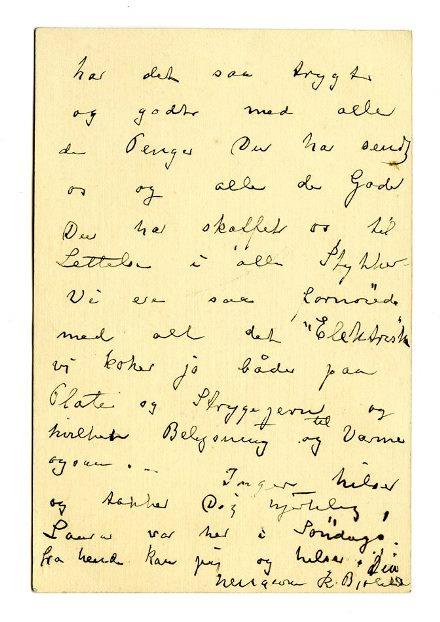 har det saa trygt
og godt med alle
de Penger Du har sendt
os og alle de Goder
Du har skaffet os til
Lettelse i alle Stykker.
Vi ere saa fornøiede
med alt det "Elektrisk"
vi koker jo både paa
Plate og Strygejern og
hvilken Belysning og til Varme
ogsaa. —
Inger hilser
og takker Dig hjertelig,
Laura var her i Søndags,
fra hende kan jeg og hilse. Din
hengivne K. B